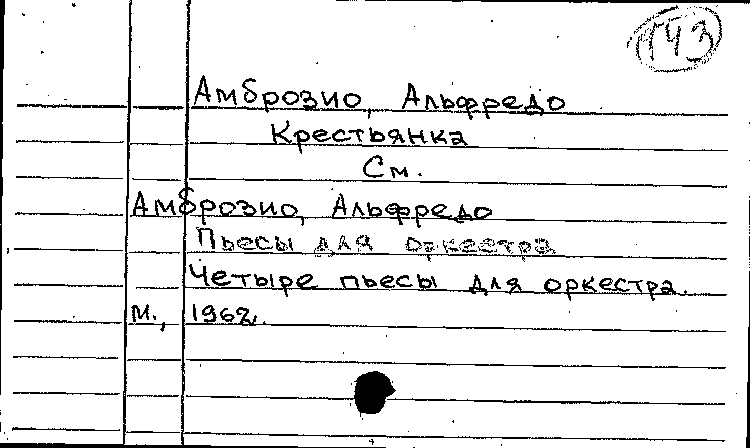 Амброзио, Альфредо
Крестьянка
См.
Амброзио, Альфредо
Пьесы для оркестра
Четыре пьесы для оркестра.
М., 1962.